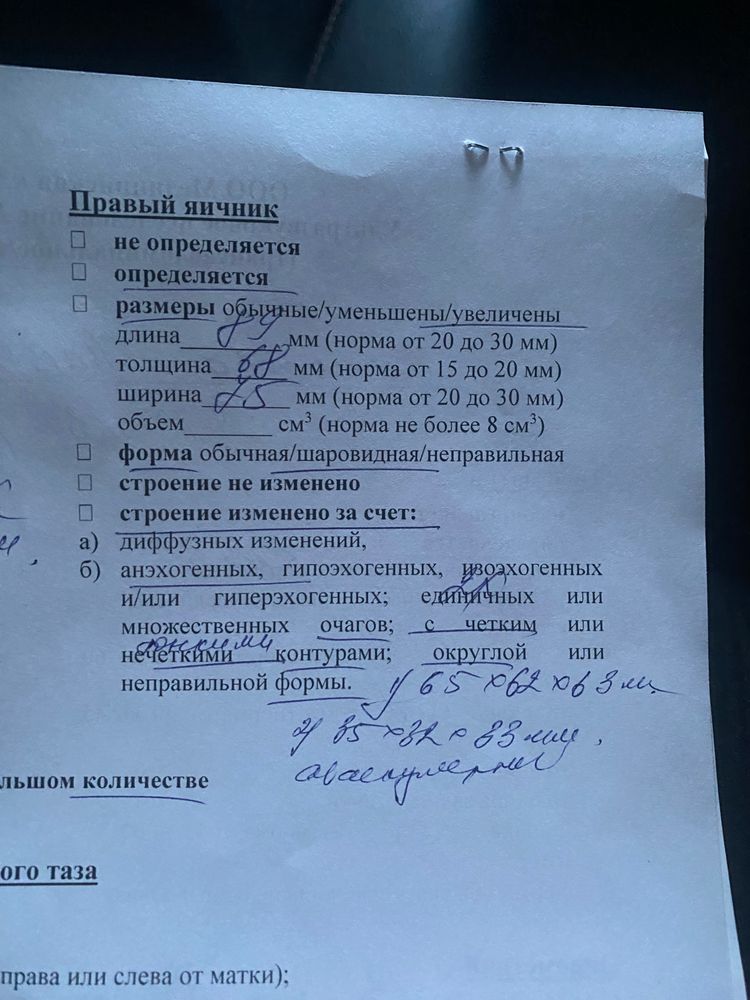 Правый яичник
□ не определяется
□ определяется
□ размеры обычные/уменьшены/увеличены
длина мм (норма от 20 до 30 мм)
толщина 68 мм (норма от 15 до 20 мм)
ширина 75 мм (норма от 20 до 30 мм)
объем см³ (норма не более 8 см³)
□ форма обычная/шаровидная/неправильная
□ строение не изменено
□ строение изменено за счет:
а) диффузных изменений,
б) анэхогенных, гипоэхогенных, изоэхогенных
и/или гиперэхогенных; единичных или
множественных очагов; с четким или
тонкими
нечеткими контурами; округлой или
неправильной формы. 1) 65×62×63 мм
2) 35×32×33 мм,
аваскулярные
льшом количестве
ого таза
права или слева от матки);